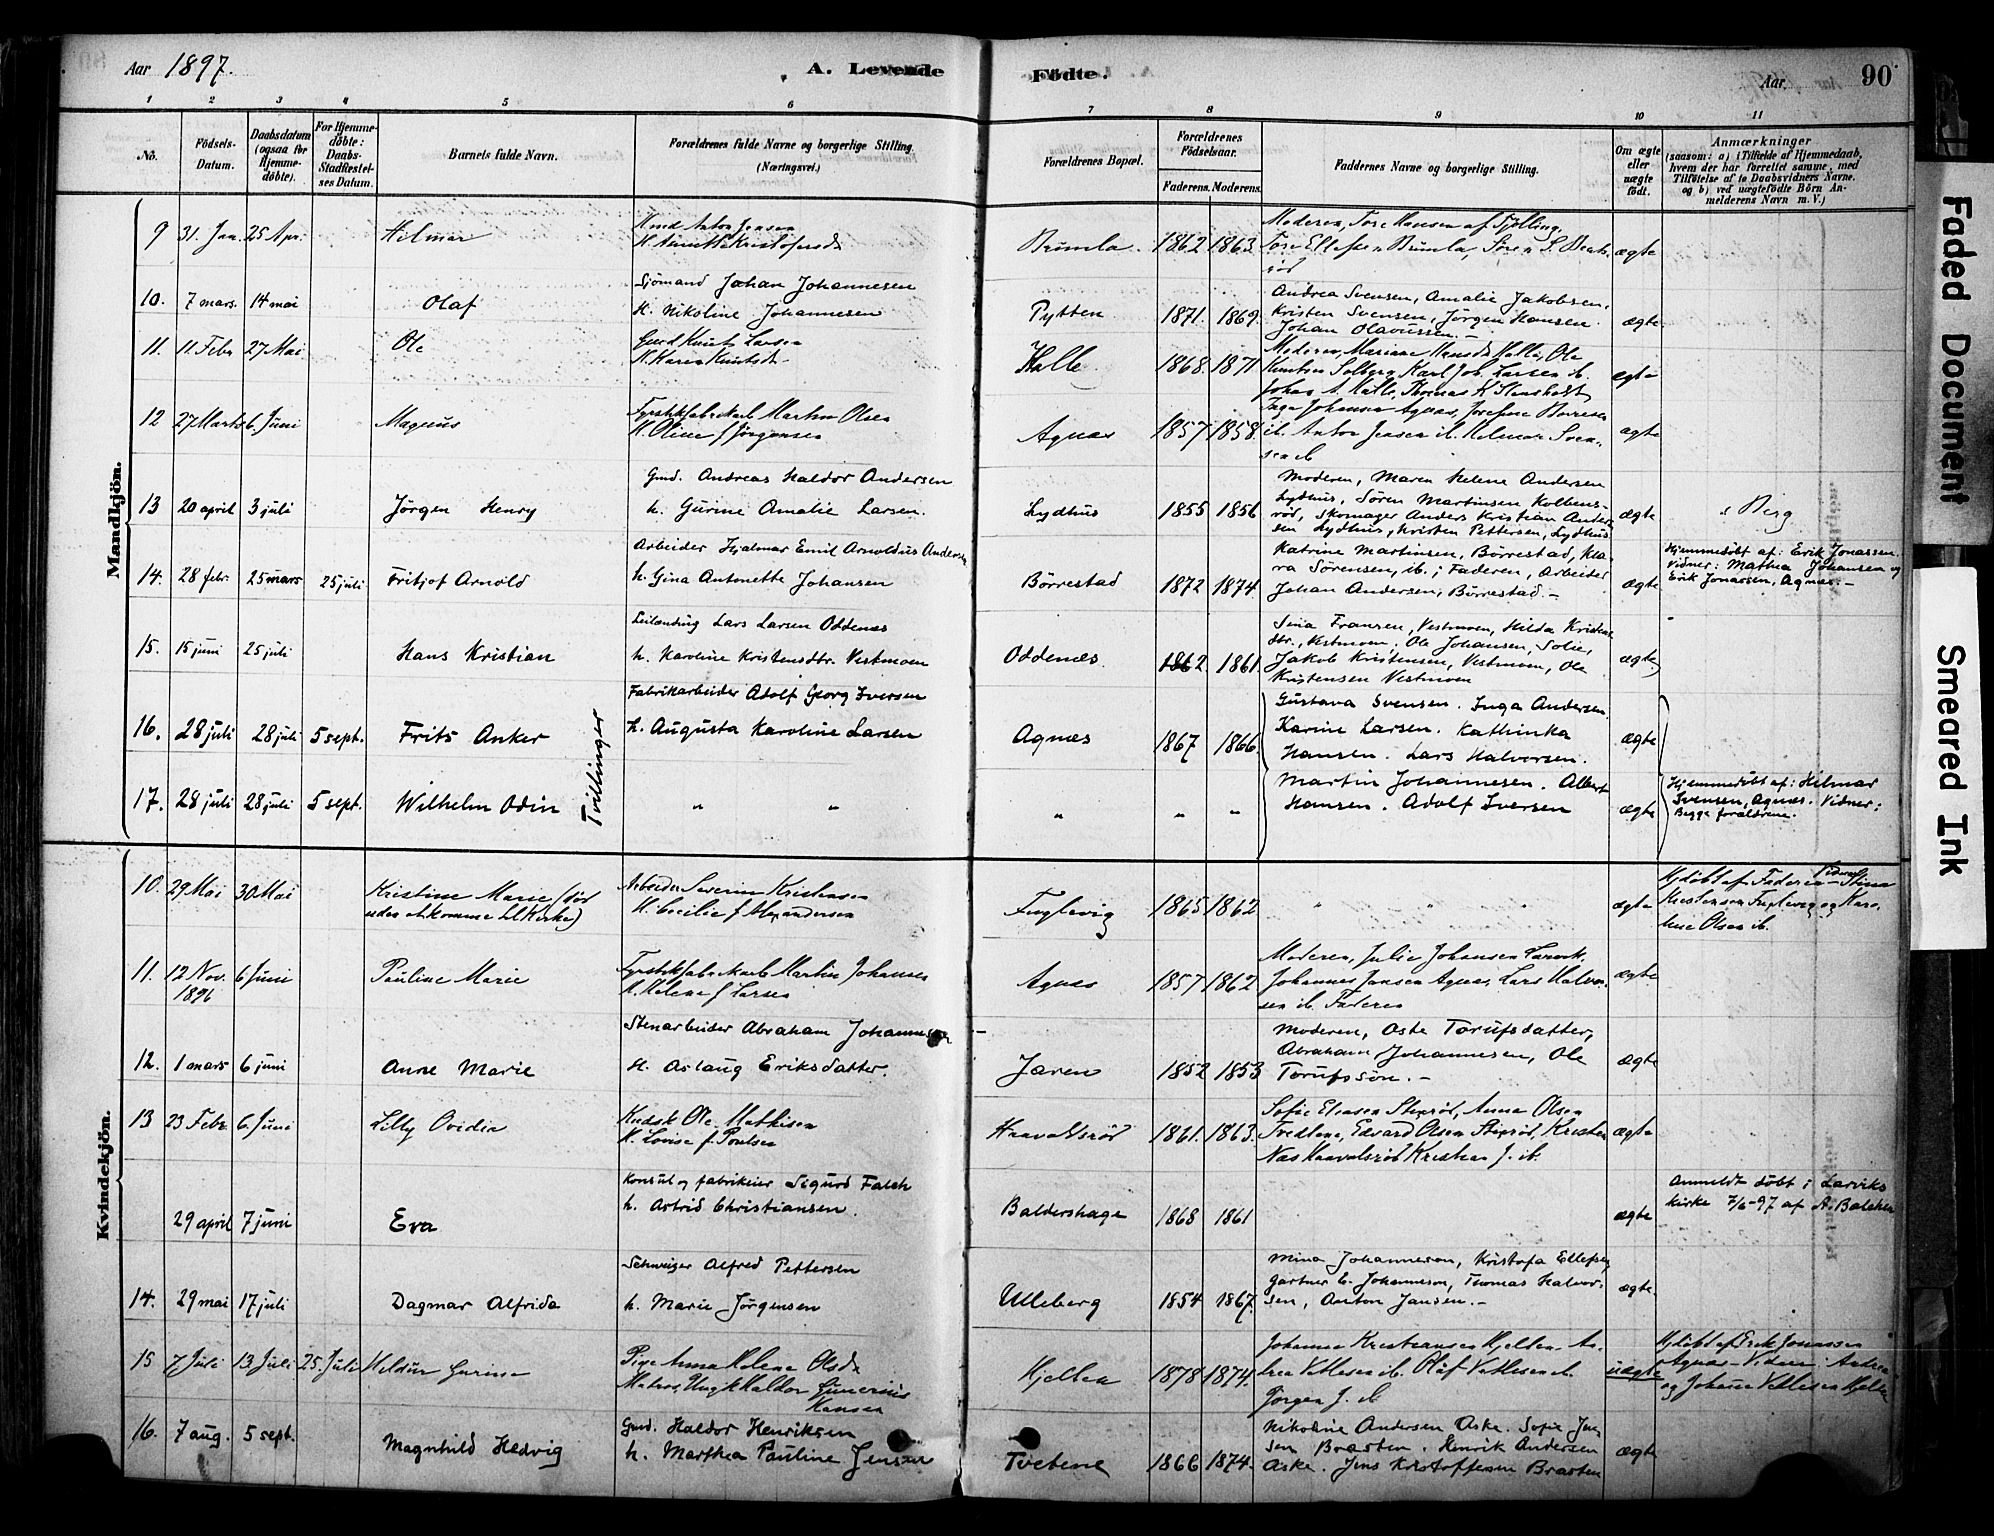 Aar 1897.
A. Levende
Fødte.
Aar
90
1 2 3 4 5 6 7 8 9 10 11
No.
Fødsels-
Datum.
Daabsdatum
(ogsaa for
Hjemme-
døbte).
For Hjemme-
døbte:
Daabs-
Stadfæstel-
ses Datum.
Barnets fulde Navn.
Forældrenes fulde Navne og borgerlige Stilling.
(Næringsvei.)
Forældrenes Bopæl.
Forældrenes
Fødselsaar.
Faderens. Moderens.
Faddernes Navne og borgerlige Stilling.
Om ægte
eller
uægte
født.
Anmærkninger
(saasom: a) i Tilfælde af Hjemmedaab,
hvem der har forrettet samme, med
Tilføielse af to Daabsvidners Navne.
og b) ved uægtefødte Børn An-
melderens Navn m. V.)
Mandkjön.
9 31. Jan. 25 Apr. Hilmar
Anton Jensen
Brumla. 1862 1863.
Moderen, Tore Hansen af Tjølling
Tore Ellefsen Brumla, Søren S.
ægte
10. 7 mars. 14 mai Olaf
Sjømand Johan Johannesen
H. Nikoline Johannesen
Pytten 1871. 1869.
Andrea Svensen, Amalie Jakobsen,
Kristen Svensen, Jørgen Hansen.
Johan Olavussen.
ægte
11. 11 Febr 27 Mai Ole
Gmd Knut Larsen
H. Karen Knutsd.
Halle. 1868. 1871
Moderen, Mariane Hansd. Halle, Ole
Knutsen Solberg, Karl Joh. Larsen ib.
Johan A. Halle, Thomas H.
ægte
12 27 Marts 6. Juni Magnus
Fyrstikfabr.arb Martin Olsen
H. Oline f Jørgensen
Agnæs 1857 1858.
Inga Johansen Agnæs, Josefine
ib. Anton Jensen ib. Hilmar Sven-
sen ib
ægte
13 20 april 3 juli Jørgen Henry
Gmd. Andreas Haldor Andersen
h. Gurine Amalie Larsen.
Lydhus 1855 1856
Moderen, Maren Helene Andersen
Lydhus, Søren Martinsen Kolbens-
rød, Skomager Anders Kristian Ander-
sen Lydhus, Kristen Pettersen, Lydhus
ægte
i Berg
14. 28 febr. 25 mars 25 juli Fritjof Arnold
Arbeider Hjalmar Emil Arnoldus Andersen
h. Gina Antonette Johansen
Børrestad 1872 1874.
Katrine Martinsen, Børrestad, Kla-
ra Sørensen, ib.; Faderen, Arbeider
Johan Andersen, Børrestad.
ægte
Hjemmedøbt af: Erik Jonassen.
Vidner: Mathea Johansen og
Erik Jonassen, Agnæs.
15. 15 juni 25 juli Hans Kristian
Leilænding Lars Larsen Oddenæs
h. Karoline Kristensdtr. Vestmoen
Oddenæs. 1862 1861.
Sina Fransen, Vestmoen, Hilda Kristens-
dtr., Vestmoen, Ole Johansen, Solie,
Jakob Kristensen, Vestmoen, Ole
Kristensen Vestmoen
ægte
16. 28 juli 28 juli 5 sept. Frits Anker
Tvillinger
Fabrikarbeider Adolf Georg Iversen
h. Augusta Karoline Larsen
Agnæs 1867 1866.
Gustava Svensen. Inga Andersen.
Karine Larsen. Kathinka
Hansen. Lars Halvorsen.
ægte
17. 28 juli 28 juli 5 sept. Wilhelm Odin
" " " " "
Martin Johannesen. Albert
Hansen. Adolf Iversen
ægte
Hjemmedøbt af: Hilmar
Svensen, Agnæs. Vidner:
Begge forældrene.
Kvindekjön.
10. 29 Mai 30 Mai Kristine Marie (død
uden at komme til Kirke)
Arbeider Severin Kristensen
H. Cecilie f Alexandersen
Fuglevig 1865 1862
" " "
ægte
Hjdøbt af Faderen Vidner Stina
Kristensen Fuglevig og Karo-
line Olsen ib.
11. 12 Nov. 1896 6 Juni Pauline Marie
Fyrstikfabr.arb Martin Johansen
H. Helene f Larsen
Agnæs 1857 1862
Moderen, Julie Johansen Larvik,
Johannes Jansen Agnæs, Lars Halvor-
sen ib. Faderen
ægte
12. 1 mars 6 juni Anne Marie
Stenarbeider Abraham Johannesen
H. Aslaug Eriksdatter.
Jæren 1852 1853
Moderen, Oste Torufsdatter,
Abraham Johannesen, Ole
Torufssøn.
ægte
13 23 Febr. 6. Juni Lilly Ovidia
Kudsk Ole Mathisen
H. Lovise f. Poulsen
Haavaldsrød 1861. 1863.
Sofie Eliasen, Anna Olsen
Tvedtene, Edvard Olsen, Kristen
Næs Haavalsrød Kristian J. ib.
ægte
29 april 7 juni Eva
Konsul og fabrikeier Sigurd Falch
h. Astrid Christiansen.
Baldershage 1868 1861
ægte
Anmeldt døbt i Larviks
kirke 7/6-97 af A. Balchen
14. 29 mai 17 juli Dagmar Alfrida
Schweizer Alfred Pettersen
h. Marie Jørgensen
Ulleberg 1854 1867.
Mina Johannesen, Kristofa Ellefsen,
Gartner E. Johannesen, Thomas Halvor-
sen, Anton Jansen.
ægte.
15 7 Juli 13 Juli 25. Juli Hildur Gurine
Pige Anna Helene Olsd.
Matros Ungk Haldor Gunerius
Hansen
Hjellen 1878 1874.
Johanne Kristiansen Hjellen An-
drea Vetlesen ib. Olaf Vetlesen ib.
Jørgen J. ib
uægte
Hjdøbt af Erik Jonassen
Agnæs – Vidner: Andrea
og Johanne Vetlesen Hjellen
16. 7 aug. 5 sept. Magnhild Hedvig
Gmd. Haldor Henriksen
h. Marthea Pauline Jensen
Tvetene 1866 1874.
Nikoline Andersen Aske. Sofie Jen-
sen Bræsten. Henrik Andersen
Aske. Jens Kristoffersen Bræsten
ægte
Faded Document
Smeared Ink